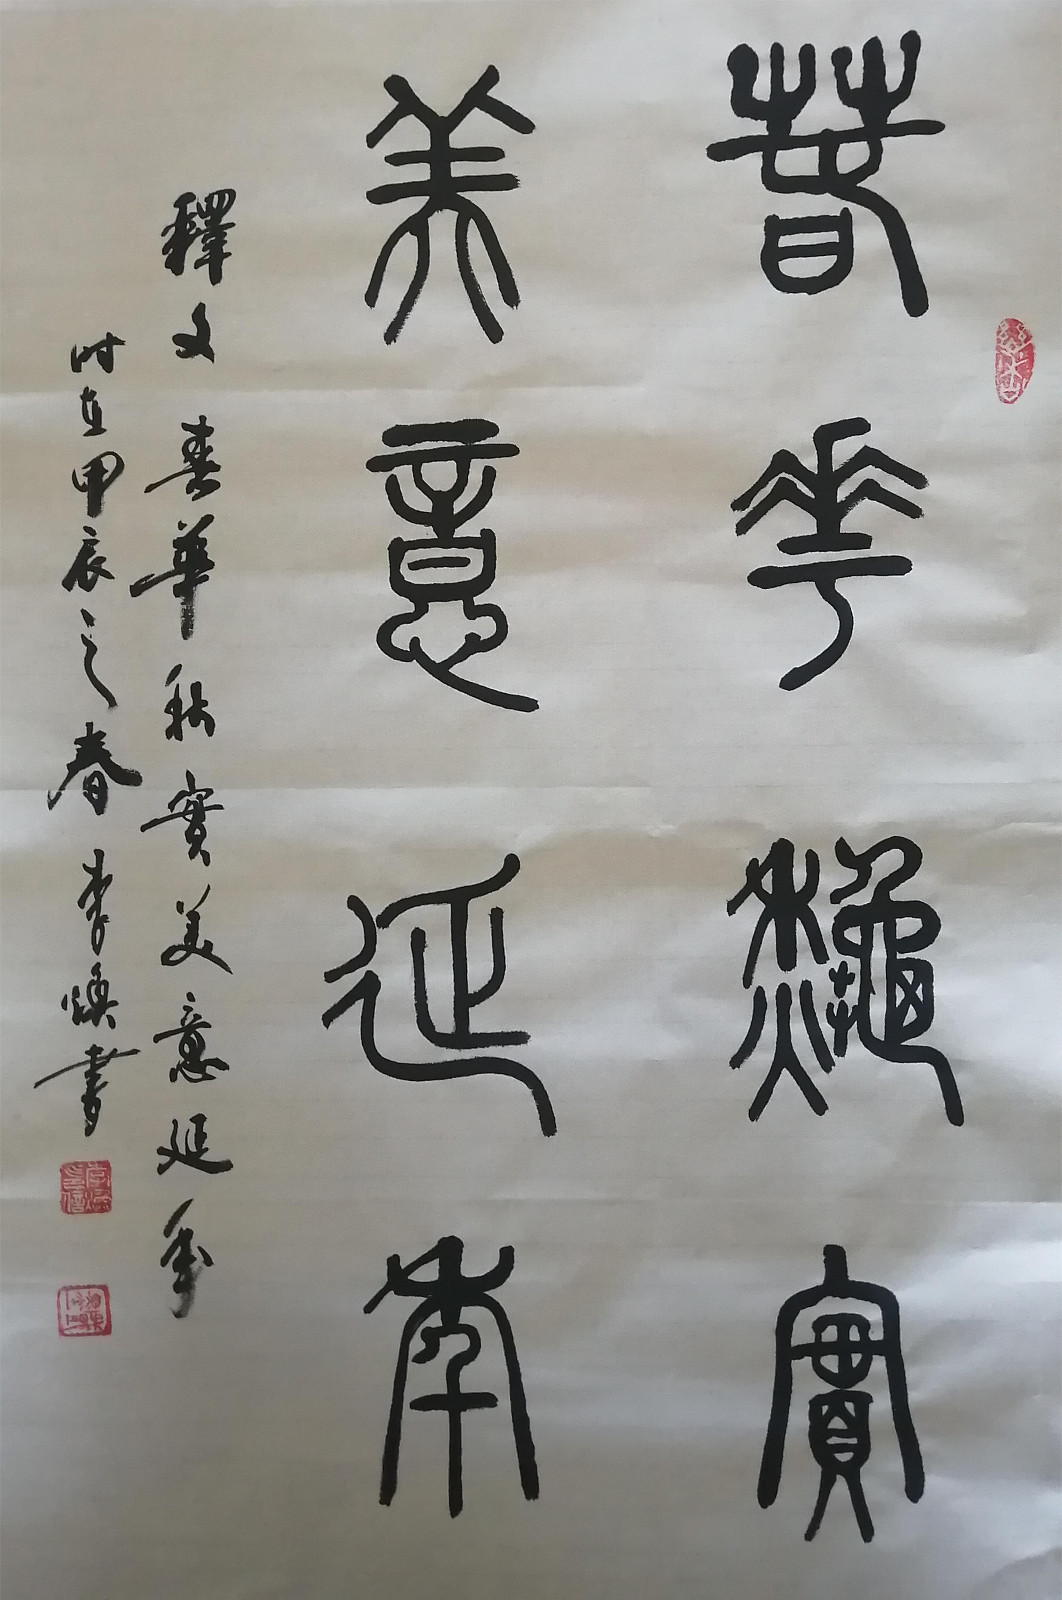 春華秋實
美意延年
釋文 春華秋實美意延年
时在甲辰之春 李煥書